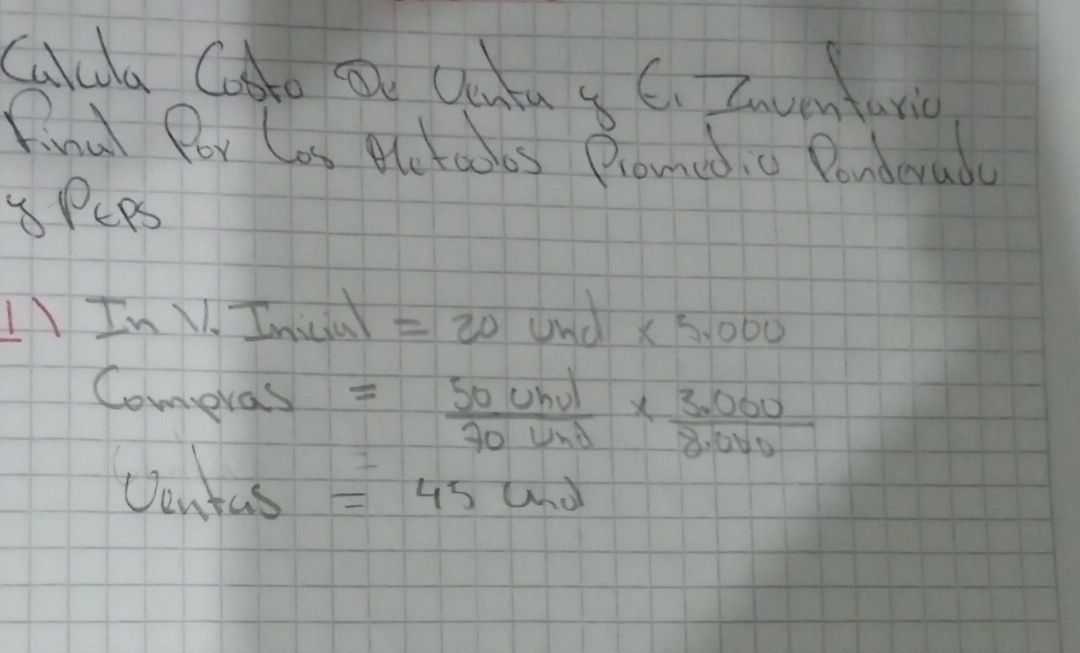 Calcula Costo De Venta y E. Inventario
Final Por Los Metodos Promedio Ponderado
y PEPS
1) Inv. Inicial = 20 und x 5.000
Compras = 50 und x 3.000
70 und 8.000
Ventas = 45 und